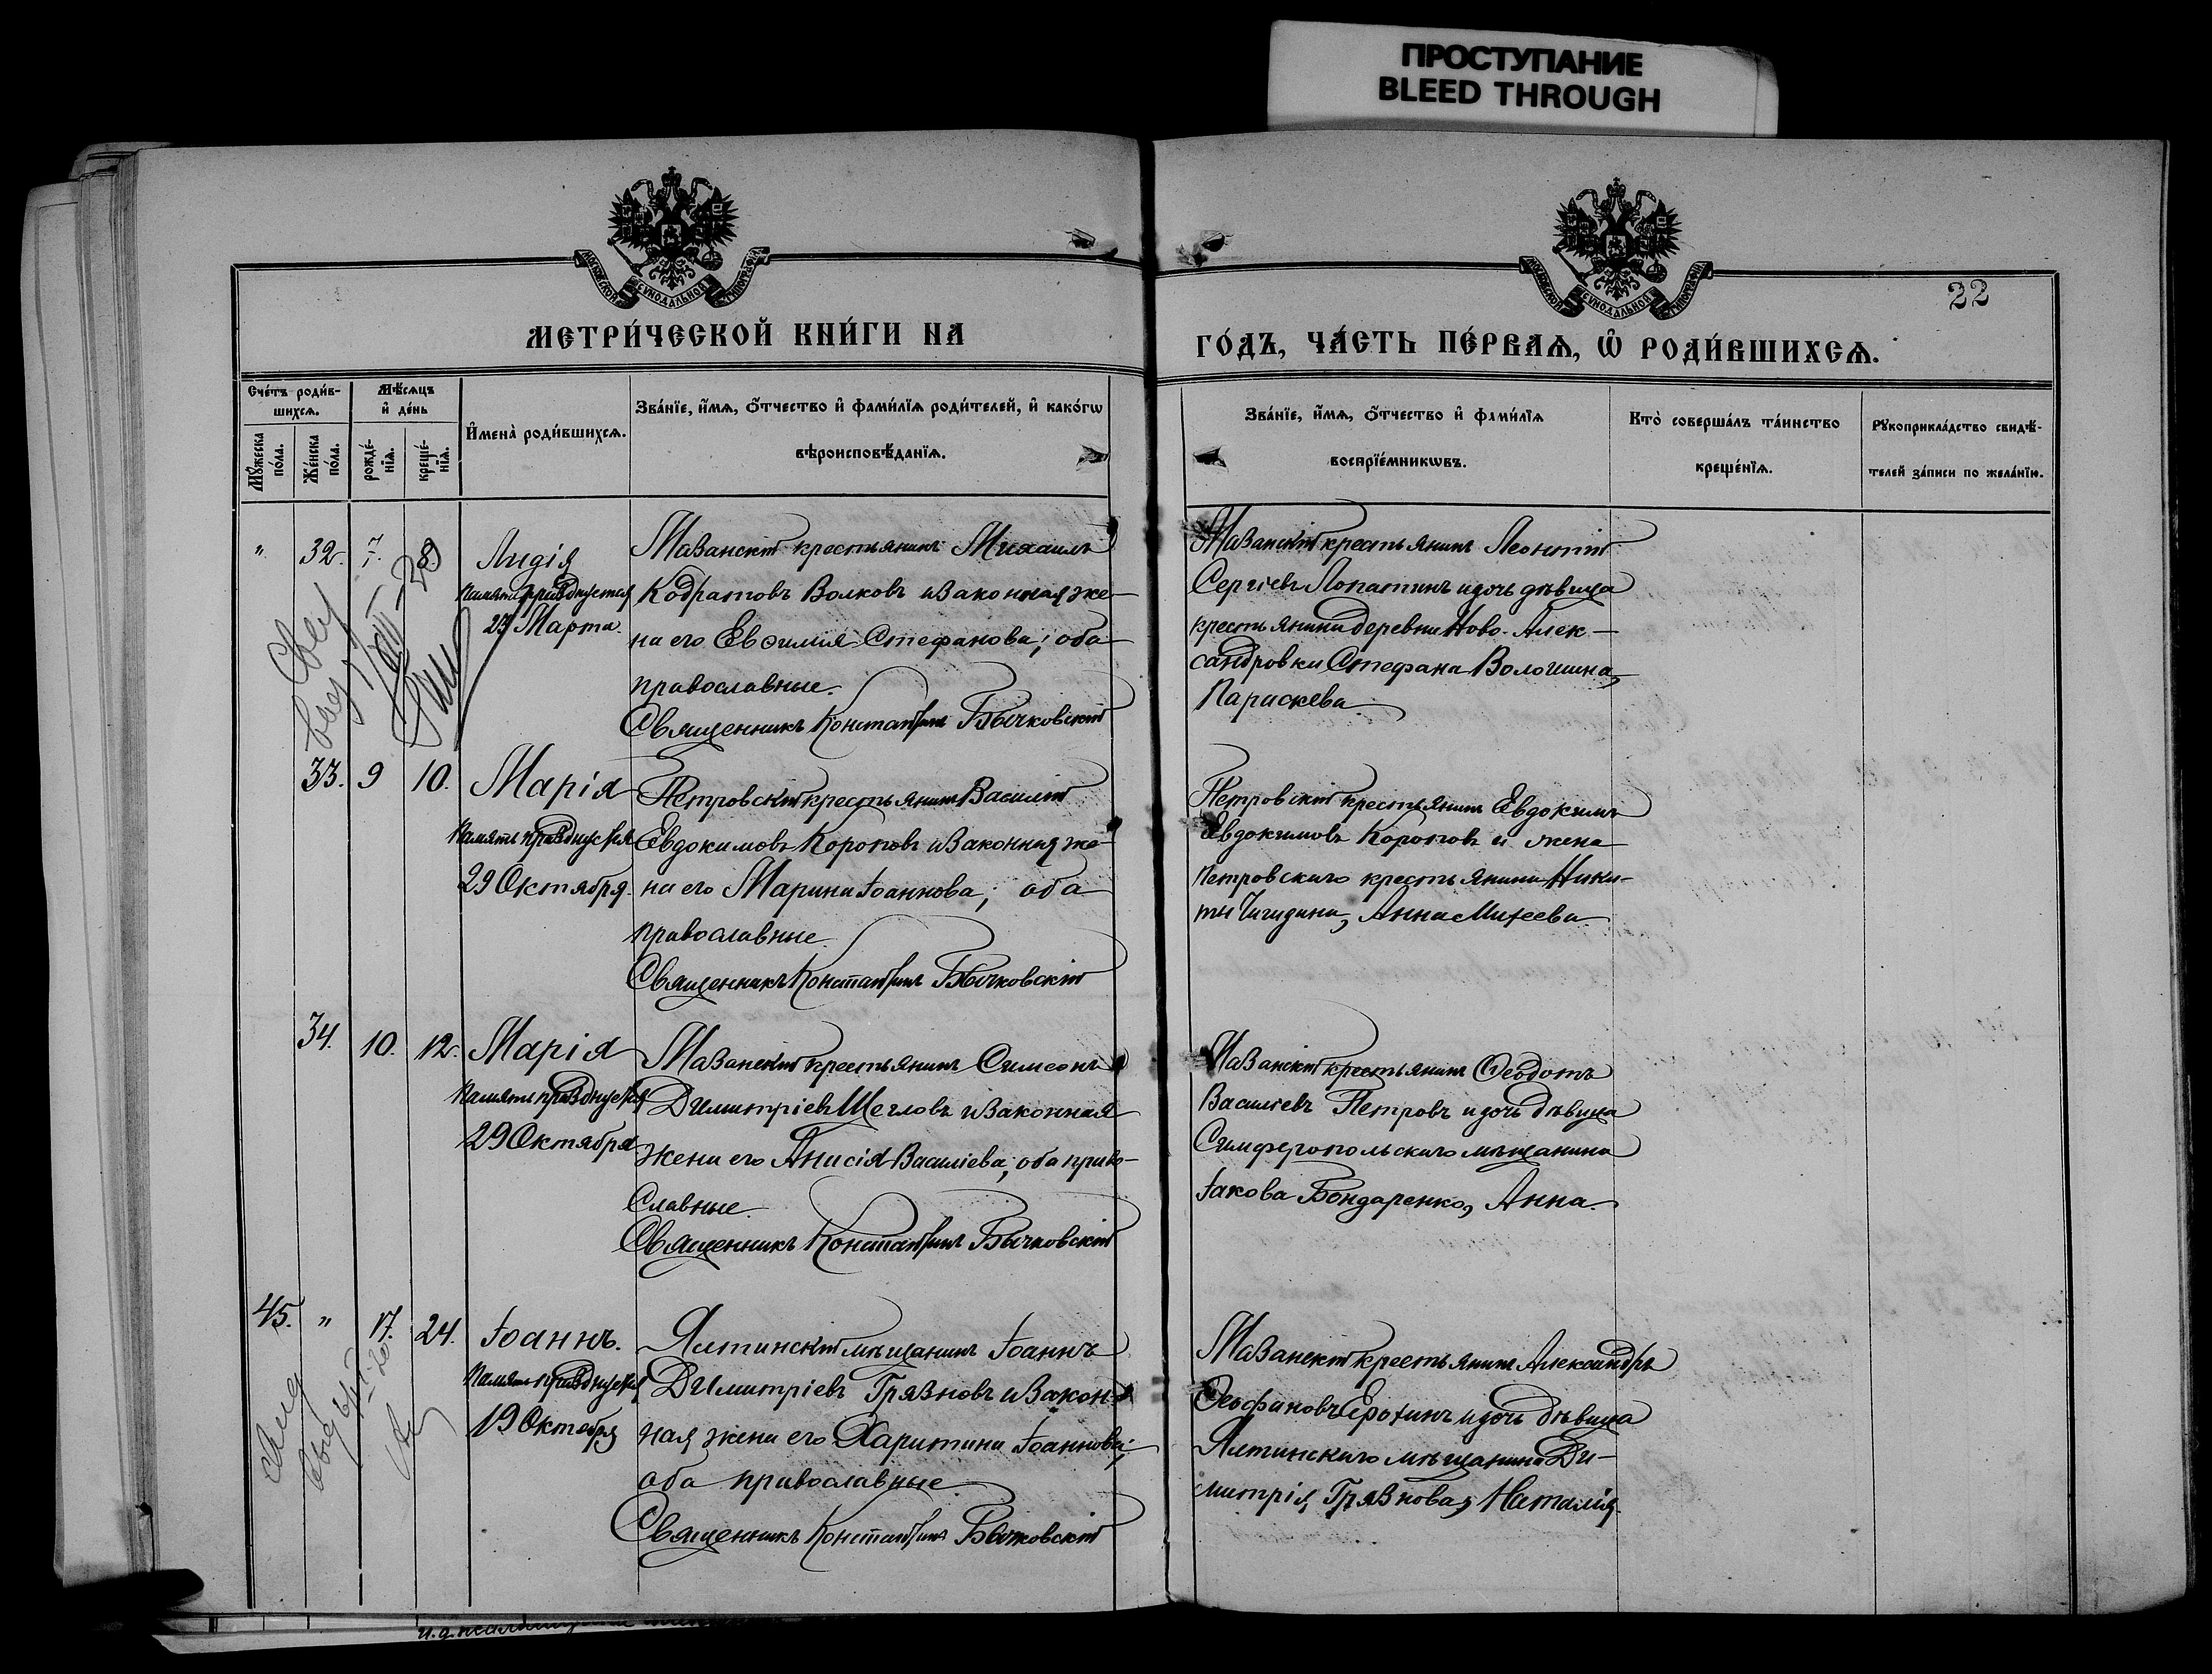 ПРОСТУПАНИЕ
BLEED THROUGH
МОСКОВСКОЙ СѴНОДАЛЬНОЙ ТИПОГРАФІИ
МОСКОВСКОЙ СѴНОДАЛЬНОЙ ТИПОГРАФІИ
22
МЕТРИ́ЧЕСКОЙ КНИ́ГИ НА
ГО́ДЪ, ЧА́СТЬ ПЕ́РВАѦ, Ѡ҆ РОДИ́ВШИХСѦ.
Сче́тъ роди́в-
шихсѧ.
Мꙋ́жеска по́ла.
Же́нска по́ла.
Мѣ́сѧцъ
и҆ де́нь
рожде́-
нїѧ.
креще́-
нїѧ.
И҆мена̀ роди́вшихсѧ.
Зва́нїе, и҆́мѧ, ѻ҆́тчество и҆ фами́лїѧ роди́телей, и҆ како́гѡ
вѣроисповѣ́данїѧ.
Зва́нїе, и҆́мѧ, ѻ҆́тчество и҆ фами́лїѧ
воспрїе́мникѡвъ.
Кто̀ соверша́лъ та́инство
креще́нїѧ.
Рꙋкоприкла́дство свидѣ́-
телей за́писи по жела́нїю.
" 32. 7. 8.
Лидія
Память празднуется
23 Марта.
Мазанскій крестьянинъ Михаилъ
Кодратовъ Волковъ и законная же-
на его Евѳимія Стефанова; оба
православные.
Священникъ Константинъ Бычковскій
Мазанскій крестьянинъ Леонтій
Сергіевъ Лопатинъ и дочь дѣвица
крестьянина деревни Ново-Алек-
сандровки Стефана Волошина,
Параскева.
33. 9 10.
Марія
Память празднуется
29 Октября.
Петровскій крестьянинъ Василій
Евдокимовъ Коротовъ и законная же-
на его Марина Іоаннова; оба
православные.
Священникъ Константинъ Бычковскій
Петровскій крестьянинъ Евдокимъ
Евдокимовъ Коротовъ и жена
Петровскаго крестьянина Ники-
ты Чигидина, Анна Михеева.
34. 10. 12.
Марія
Память празднуется
29 Октября.
Мазанскій крестьянинъ Симеонъ
Димитріевъ Щегловъ и законная
жена его Анисія Василіева; оба право-
славные.
Священникъ Константинъ Бычковскій
Мазанскій крестьянинъ Ѳеодотъ
Василіевъ Петровъ и дочь дѣвица
Симферопольскаго мѣщанина
Іакова Бондаренко, Анна.
45. " 17. 24.
Іоаннъ.
Память празднуется
19 Октября
Ялтинскій мѣщанинъ Іоаннъ
Димитріевъ Грязновъ и закон-
ная жена его Харитина Іоаннова;
оба православные.
Священникъ Константинъ Бычковскій
Мазанскій крестьянинъ Александръ
Ѳеофановъ Ерохинъ и дочь дѣвица
Ялтинскаго мѣщанина Ди-
митрія Грязнова, Наталія.